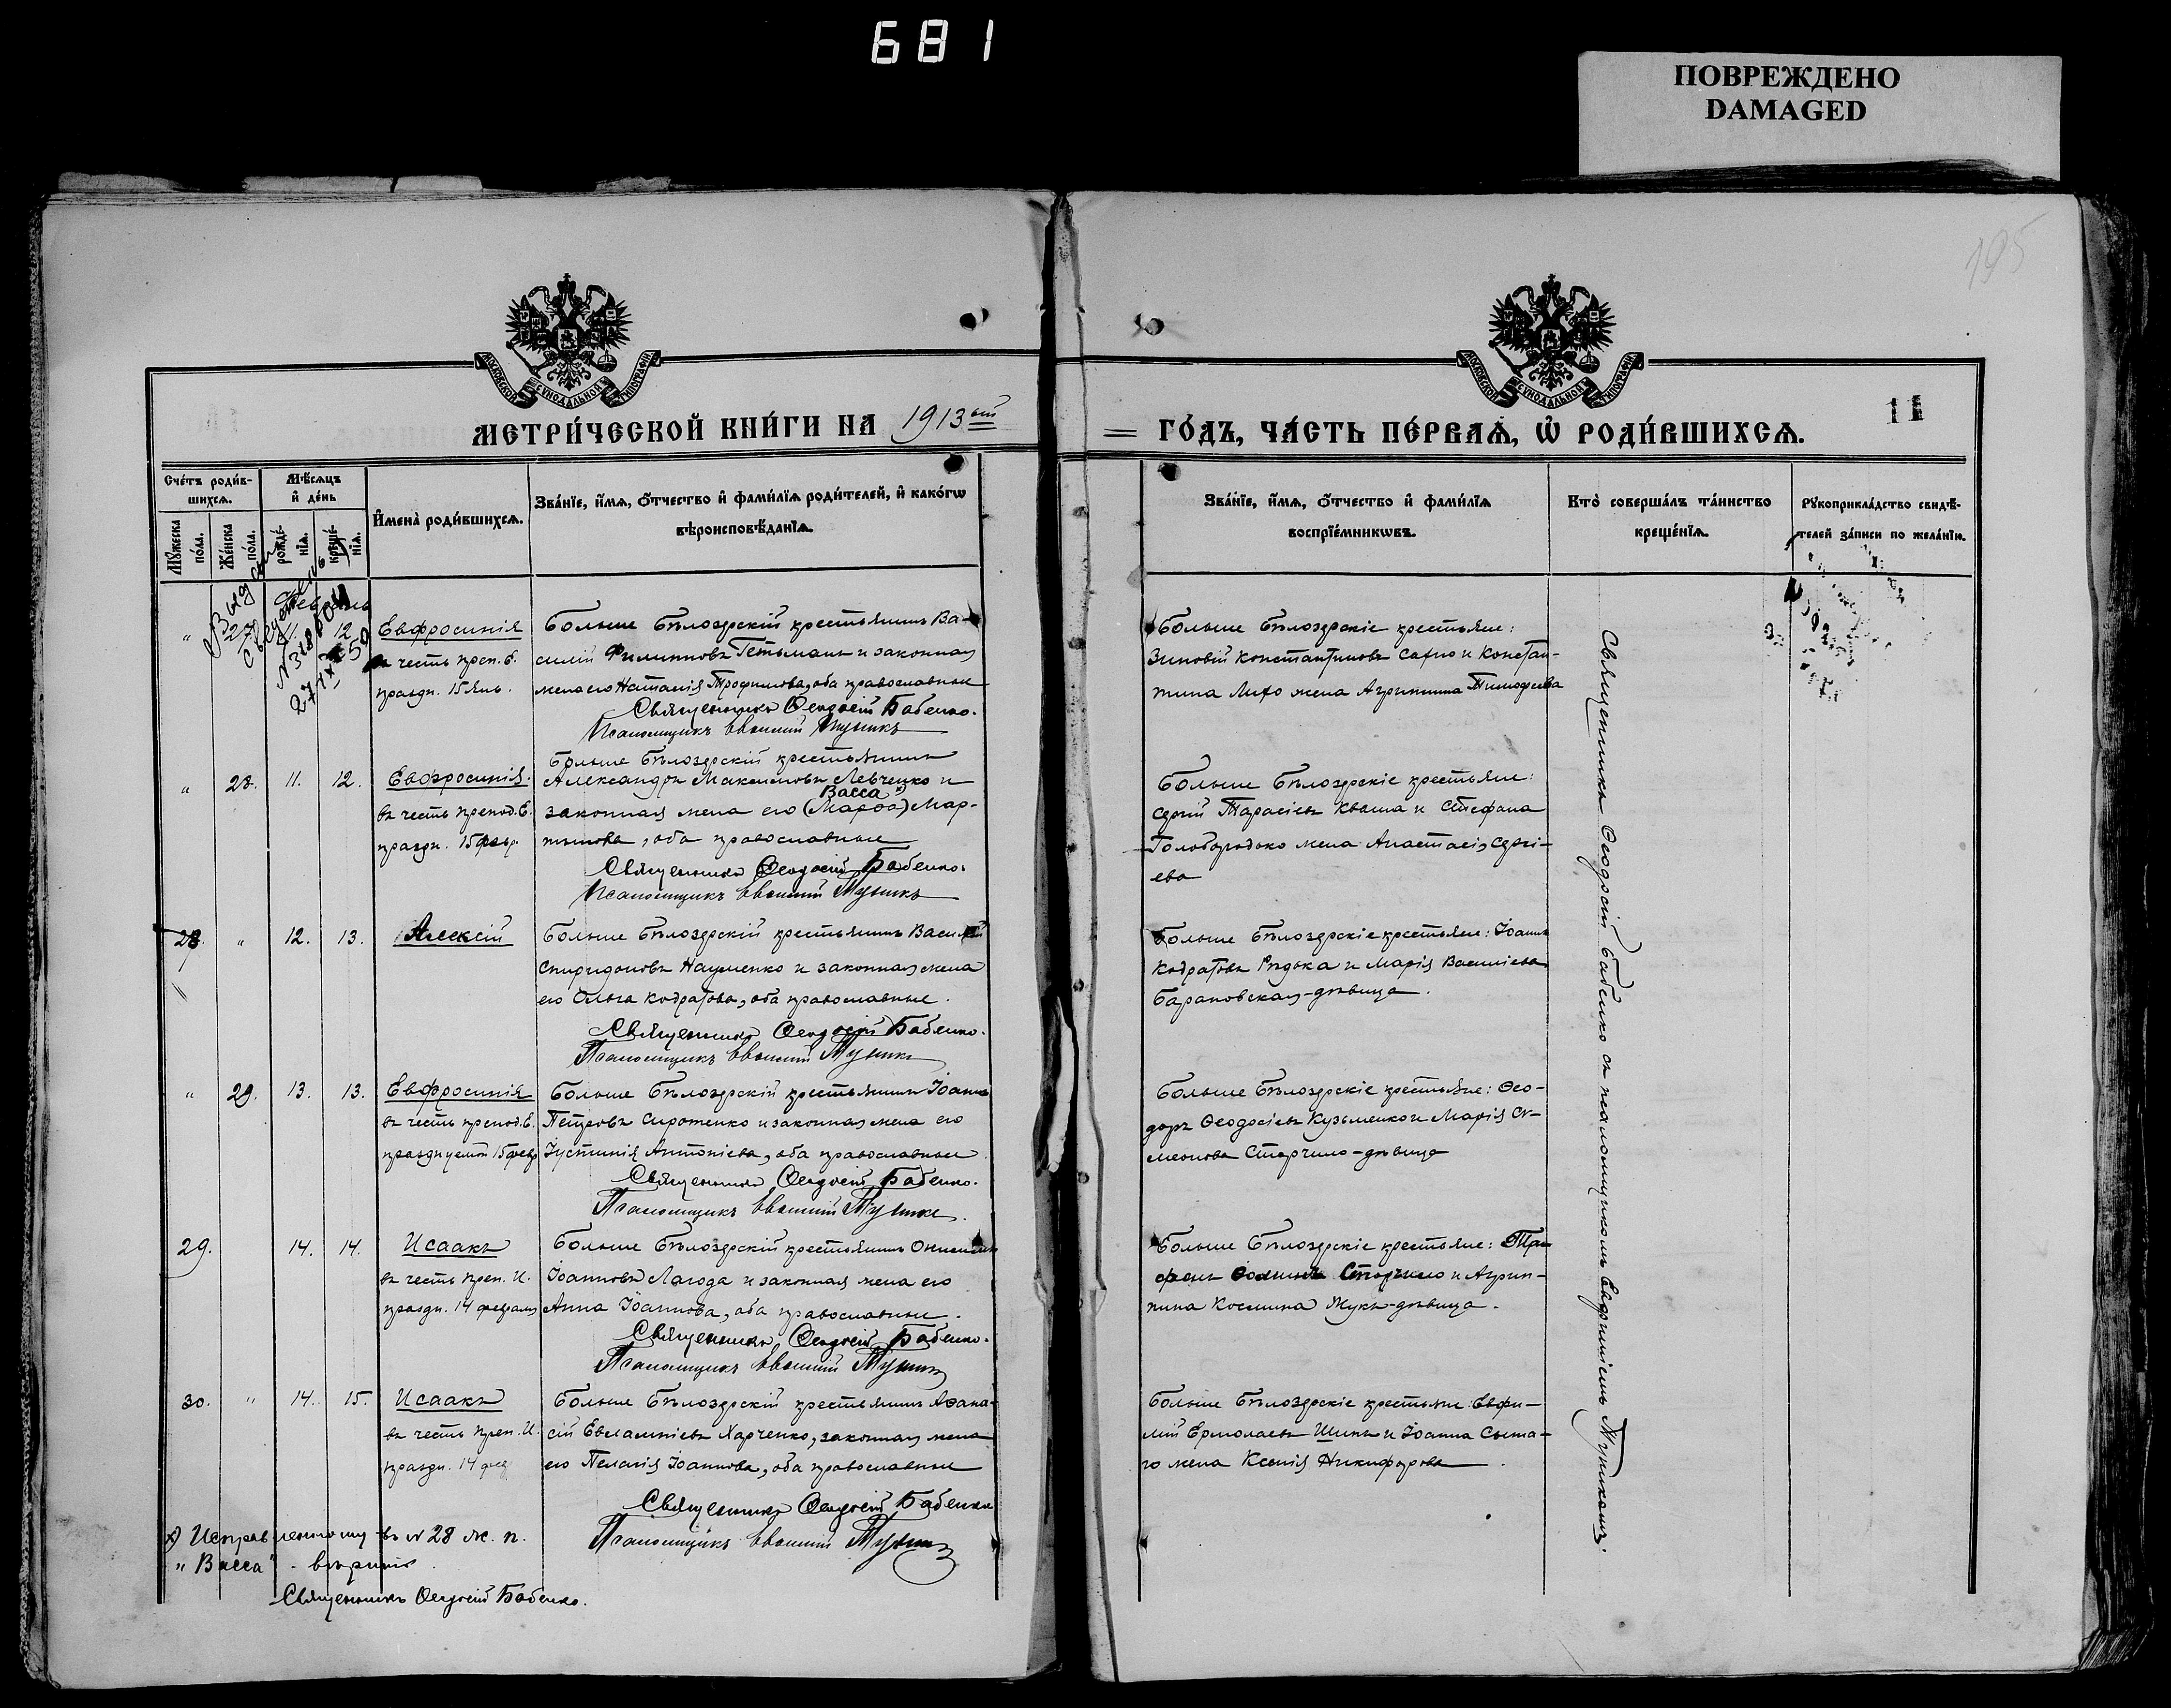 681
ПОВРЕЖДЕНО
DAMAGED
195
МОСКОВСКОЙ СѴНОДАЛЬНОЙ ТИПОГРАФІИ
МОСКОВСКОЙ СѴНОДАЛЬНОЙ ТИПОГРАФІИ
МЕТРИ́ЧЕСКОЙ КНИ́ГИ НА 1913ый
ГО́ДЪ, ЧА́СТЬ ПЕ́РВАѦ, Ѡ҆ РОДИ́ВШИХСѦ.
11
Сче́тъ роди́в-
шихсѧ.
Мѣ́сѧцъ
и҆ де́нь
Мꙋ́жеска
по́ла.
Же́нска
по́ла.
рожде́-
нїѧ.
креще́-
нїѧ.
И҆мена̀ роди́вшихсѧ.
Зва́нїе, и҆́мѧ, ѻ҆́тчество и҆ фами́лїѧ роди́телей, и҆ како́гѡ
вѣроисповѣ́данїѧ.
Зва́нїе, и҆́мѧ, ѻ҆́тчество и҆ фами́лїѧ
воспрїе́мникѡвъ.
Кто̀ соверша́лъ та́инство
креще́нїѧ.
Рꙋкоприкла́дство свидѣ́-
телей за́писи по жела́нїю.
Февраль
" 27. 11. 12.
Евфросинія
въ честь преп. Е.
праздн. 15 янв.
Больше Бѣлозерскій крестьянинъ Ва-
силій Филипповъ Гетьманъ и законная
жена его Наталія Трофимова, оба православные
Священникъ Ѳеодосій Бабенко.
Псаломщикъ Евѳимій Пушикъ
Больше Бѣлозерскіе крестьяне:
Зиновій Константиновъ Сахно и Констан-
тина Лихо жена Агриппина Тимофеева
" 28. 11. 12.
Евфросинія.
въ честь препод. Е.
праздн. 15 февр.
Больше Бѣлозерскій крестьянинъ
Александръ Максимовъ Левченко и
Васса ")
законная жена его (Марѳа) Мар-
тынова, оба православные
Священникъ Ѳеодосій Бабенко.
Псаломщикъ Евѳимій Пушикъ
Больше Бѣлозерскіе крестьяне:
Сергій Тарасіевъ Кваша и Стефана
Голобородько жена Анастасія Сергі-
ева
28. " 12. 13.
Алексій
Больше Бѣлозерскій крестьянинъ Василій
Спиридоновъ Науменко и законная жена
его Ольга Кодратова, оба православные.
Священникъ Ѳеодосій Бабенко.
Псаломщикъ Евѳимій Пушикъ
Больше Бѣлозерскіе крестьяне: Іоаннъ
Кодратовъ Рѣдька и Марія Василіева
Барановская-дѣвица.
" 29. 13. 13.
Евфросинія
въ честь препод. Е.
празднуемой 15 февр.
Больше Бѣлозерскій крестьянинъ Іоаннъ
Петровъ Сиротенко и законная жена его
Іустинія Антоніева, оба православные
Священникъ Ѳеодосій Бабенко.
Псаломщикъ Евѳимій Пушикъ.
Больше Бѣлозерскіе крестьяне: Ѳео-
доръ Ѳеодосіевъ Кузьменко и Марія Си-
меонова Сторчило-дѣвица
29. 14. 14.
Исаакъ
въ честь преп. И.
праздн. 14 февраля
Больше Бѣлозерскій крестьянинъ Онисимъ
Іоанновъ Лагода и законная жена его
Анна Іоаннова, оба православные.
Священникъ Ѳеодосій Бабенко.
Псаломщикъ Евѳимій Пушикъ
Больше Бѣлозерскіе крестьяне: Три-
фонъ Ѳоминъ Сторчило и Агрип-
пина Космина Жукъ-дѣвица.
30. " 14. 15.
Исаакъ
въ честь преп. И.
праздн. 14 фев
Больше Бѣлозерскій крестьянинъ Аѳана-
сій Евлампіевъ Харченко, законная жена
его Пелагія Іоаннова, оба православные
Священникъ Ѳеодосій Бабенко
Псаломщикъ Евѳимій Пушикъ
Больше Бѣлозерскіе крестьяне: Евфи-
мій Ермолаевъ Шинъ и Іоанна Сыта-
го жена Ксенія Никифорова.
Священникъ Ѳеодосій Бабенко съ псаломщикомъ Евфиміемъ Пушикомъ.
Исправленному въ № 28 ж. п.
"Васса" - вѣрить.
Священникъ Ѳеодосій Бабенко.